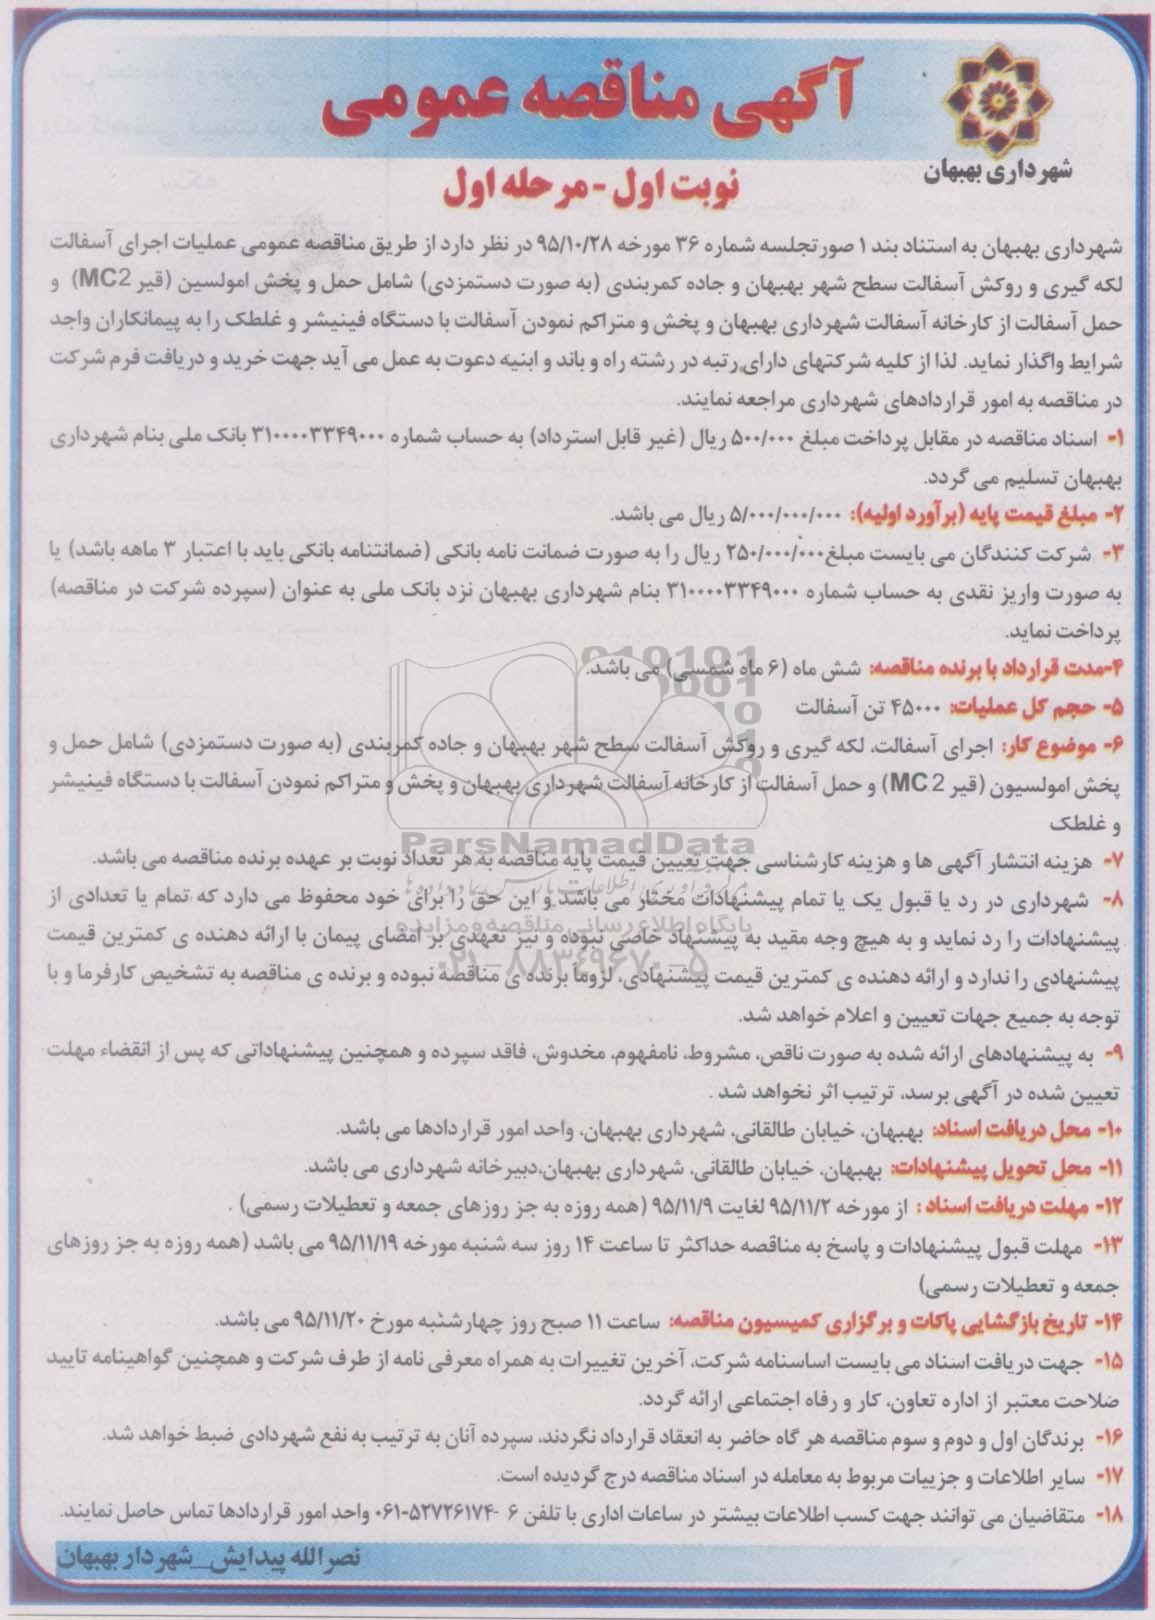 آگهی مناقصه عمومی
شهرداری بهبهان
نوبت اول - مرحله اول
شهرداری بهبهان به استناد بند ۱ صورتجلسه شماره ۳۶ مورخه ۹۵/۱۰/۲۸ در نظر دارد از طریق مناقصه عمومی عملیات اجرای آسفالت
لکه گیری و روکش آسفالت سطح شهر بهبهان و جاده کمربندی (به صورت دستمزدی) شامل حمل و پخش امولسین (قیر MC2) و
حمل آسفالت از کارخانه آسفالت شهرداری بهبهان و پخش و متراکم نمودن آسفالت با دستگاه فینیشر و غلطک را به پیمانکاران واجد
شرایط واگذار نماید. لذا از کلیه شرکتهای دارای رتبه در رشته راه و باند و ابنیه دعوت به عمل می آید جهت خرید و دریافت فرم شرکت
در مناقصه به امور قراردادهای شهرداری مراجعه نمایند.
۱- اسناد مناقصه در مقابل پرداخت مبلغ ۵۰۰/۰۰۰ ریال (غیر قابل استرداد) به حساب شماره ۳۱۰۰۰۰۳۳۴۹۰۰۰ بانک ملی بنام شهرداری
بهبهان تسلیم می گردد.
۲- مبلغ قیمت پایه (برآورد اولیه): ۵/۰۰۰/۰۰۰/۰۰۰ ریال می باشد.
۳- شرکت کنندگان می بایست مبلغ ۲۵۰/۰۰۰/۰۰۰ ریال را به صورت ضمانت نامه بانکی (ضمانتنامه بانکی باید با اعتبار ۳ ماهه باشد) یا
به صورت واریز نقدی به حساب شماره ۳۱۰۰۰۰۳۳۴۹۰۰۰ بنام شهرداری بهبهان نزد بانک ملی به عنوان (سپرده شرکت در مناقصه)
پرداخت نماید.
۴-مدت قرارداد با برنده مناقصه: شش ماه (۶ ماه شمسی) می باشد.
۵- حجم کل عملیات: ۴۵۰۰۰ تن آسفالت
۶- موضوع کار: اجرای آسفالت، لکه گیری و روکش آسفالت سطح شهر بهبهان و جاده کمربندی (به صورت دستمزدی) شامل حمل و
پخش امولسیون (قیر MC.2) و حمل آسفالت از کارخانه آسفالت شهرداری بهبهان و پخش و متراکم نمودن آسفالت با دستگاه فینیشر
و غلطک
ParsNamadData
۷- هزینه انتشار آگهی ها و هزینه کارشناسی جهت تعیین قیمت پایه مناقصه به هر تعداد نوبت بر عهده برنده مناقصه می باشد.
۸- شهرداری در رد یا قبول یک یا تمام پیشنهادات مختار می باشد و این حق را برای خود محفوظ می دارد که تمام یا تعدادی از
پایگاه اطلاع رسانی مناقصه و مزایده
پیشنهادات را رد نماید و به هیچ وجه مقید به پیشنهاد خاصی نبوده و نیز تعهدی بر امضای پیمان با ارائه دهنده ی کمترین قیمت
۰۲۱-۸۸۳۴۹۶۷۰-۵
پیشنهادی را ندارد و ارائه دهنده ی کمترین قیمت پیشنهادی، لزوما برنده ی مناقصه نبوده و برنده ی مناقصه به تشخیص کارفرما و با
توجه به جمیع جهات تعیین و اعلام خواهد شد.
۹- به پیشنهادهای ارائه شده به صورت ناقص، مشروط، نامفهوم، مخدوش، فاقد سپرده و همچنین پیشنهاداتی که پس از انقضاء مهلت
تعیین شده در آگهی برسد، ترتیب اثر نخواهد شد .
۱۰- محل دریافت اسناد: بهبهان، خیابان طالقانی، شهرداری بهبهان، واحد امور قراردادها می باشد.
۱۱- محل تحویل پیشنهادات: بهبهان، خیابان طالقانی، شهرداری بهبهان،دبیرخانه شهرداری می باشد.
۱۲- مهلت دریافت اسناد : از مورخه ۹۵/۱۱/۲ لغایت ۹۵/۱۱/۹ (همه روزه به جز روزهای جمعه و تعطیلات رسمی) .
۱۳- مهلت قبول پیشنهادات و پاسخ به مناقصه حداکثر تا ساعت ۱۴ روز سه شنبه مورخه ۹۵/۱۱/۱۹ می باشد (همه روزه به جز روزهای
جمعه و تعطیلات رسمی)
۱۴- تاریخ بازگشایی پاکات و برگزاری کمیسیون مناقصه: ساعت ۱۱ صبح روز چهارشنبه مورخ ۹۵/۱۱/۲۰ می باشد.
۱۵- جهت دریافت اسناد می بایست اساسنامه شرکت، آخرین تغییرات به همراه معرفی نامه از طرف شرکت و همچنین گواهینامه تایید
صلاحت معتبر از اداره تعاون، کار و رفاه اجتماعی ارائه گردد.
۱۶- برندگان اول و دوم و سوم مناقصه هر گاه حاضر به انعقاد قرارداد نگردند، سپرده آنان به ترتیب به نفع شهردادی ضبط خواهد شد.
۱۷- سایر اطلاعات و جزییات مربوط به معامله در اسناد مناقصه درج گردیده است.
۱۸- متقاضیان می توانند جهت کسب اطلاعات بیشتر در ساعات اداری با تلفن ۶ -۰۶۱-۵۲۷۲۶۱۷۴ واحد امور قراردادها تماس حاصل نمایند.
نصرالله پیدایش_شهردار بهبهان